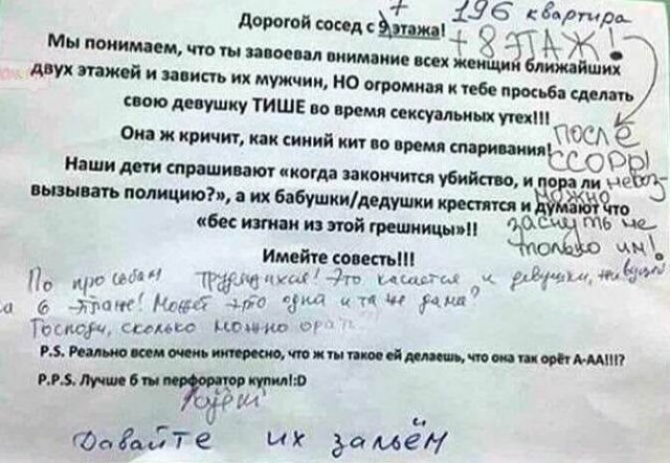 + 196 квартира
Дорогой сосед с 9 этажа!
+ 8 ЭТАЖ!
Мы понимаем, что ты завоевал внимание всех женщин ближайших
двух этажей и зависть их мужчин, НО огромная к тебе просьба сделать
свою девушку ТИШЕ во время сексуальных утех!!!
Она ж кричит, как синий кит во время спаривания!
ПОСЛЕ
ССОРЫ
Наши дети спрашивают «когда закончится убийство, и пора ли
вызывать полицию?», а их бабушки/дедушки крестятся и думают что
«бес изгнан из этой грешницы»!!
невоз
можно
заснуть не
только им!
Имейте совесть!!!
По просьбам трудящихся! Это касается и девушки, живущей
на 6 этаже! Может это одна и та же дама?
Господи, сколько можно орать
P.S. Реально всем очень интересно, что ж ты такое ей делаешь, что она так орёт А-АА!!!?
P.P.S. Лучше б ты перфоратор купил!:D
Давайте их зальём